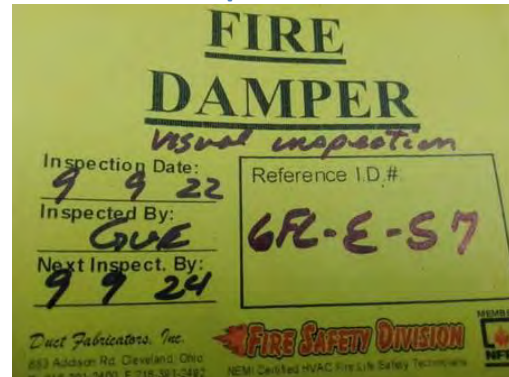 FIRE
DAMPER
visual inspection
Inspection Date:
9 9 22
Inspected By:
GUE
Next Inspect. By:
9 9 24
Reference I.D.#:
6FL-E-S7
Duct Fabricators, Inc.
883 Addison Rd. Cleveland, Ohio
FIRE SAFETY DIVISION
NEMI Certified HVAC Fire Life Safety Technicians